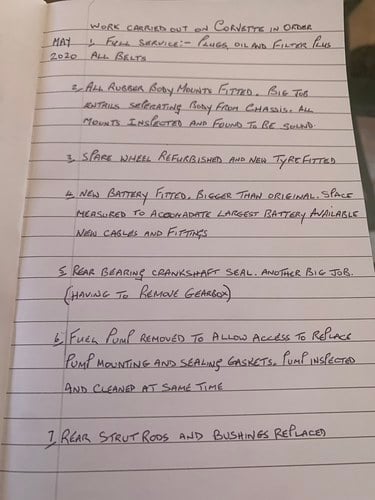 WORK CARRIED OUT ON CORVETTE IN ORDER
MAY 1. FULL SERVICE:- PLUGS, OIL AND FILTER PLUS
2020 ALL BELTS
2. ALL RUBBER BODY MOUNTS FITTED. BIG JOB
ENTAILS SEPERATING BODY FROM CHASSIS. ALL
MOUNTS INSPECTED AND FOUND TO BE SOUND.
3. SPARE WHEEL REFURBISHED AND NEW TYRE FITTED
4. NEW BATTERY FITTED. BIGGER THAN ORIGINAL. SPACE
MEASURED TO ACCOMADATE LARGEST BATTERY AVAILABLE
NEW CABLES AND FITTINGS
5. REAR BEARING CRANKSHAFT SEAL. ANOTHER BIG JOB.
(HAVING TO REMOVE GEARBOX)
6. FUEL PUMP REMOVED TO ALLOW ACCESS TO REPLACE
PUMP MOUNTING AND SEALING GASKETS. PUMP INSPECTED
AND CLEANED AT SAME TIME
7. REAR STRUT RODS AND BUSHINGS REPLACED